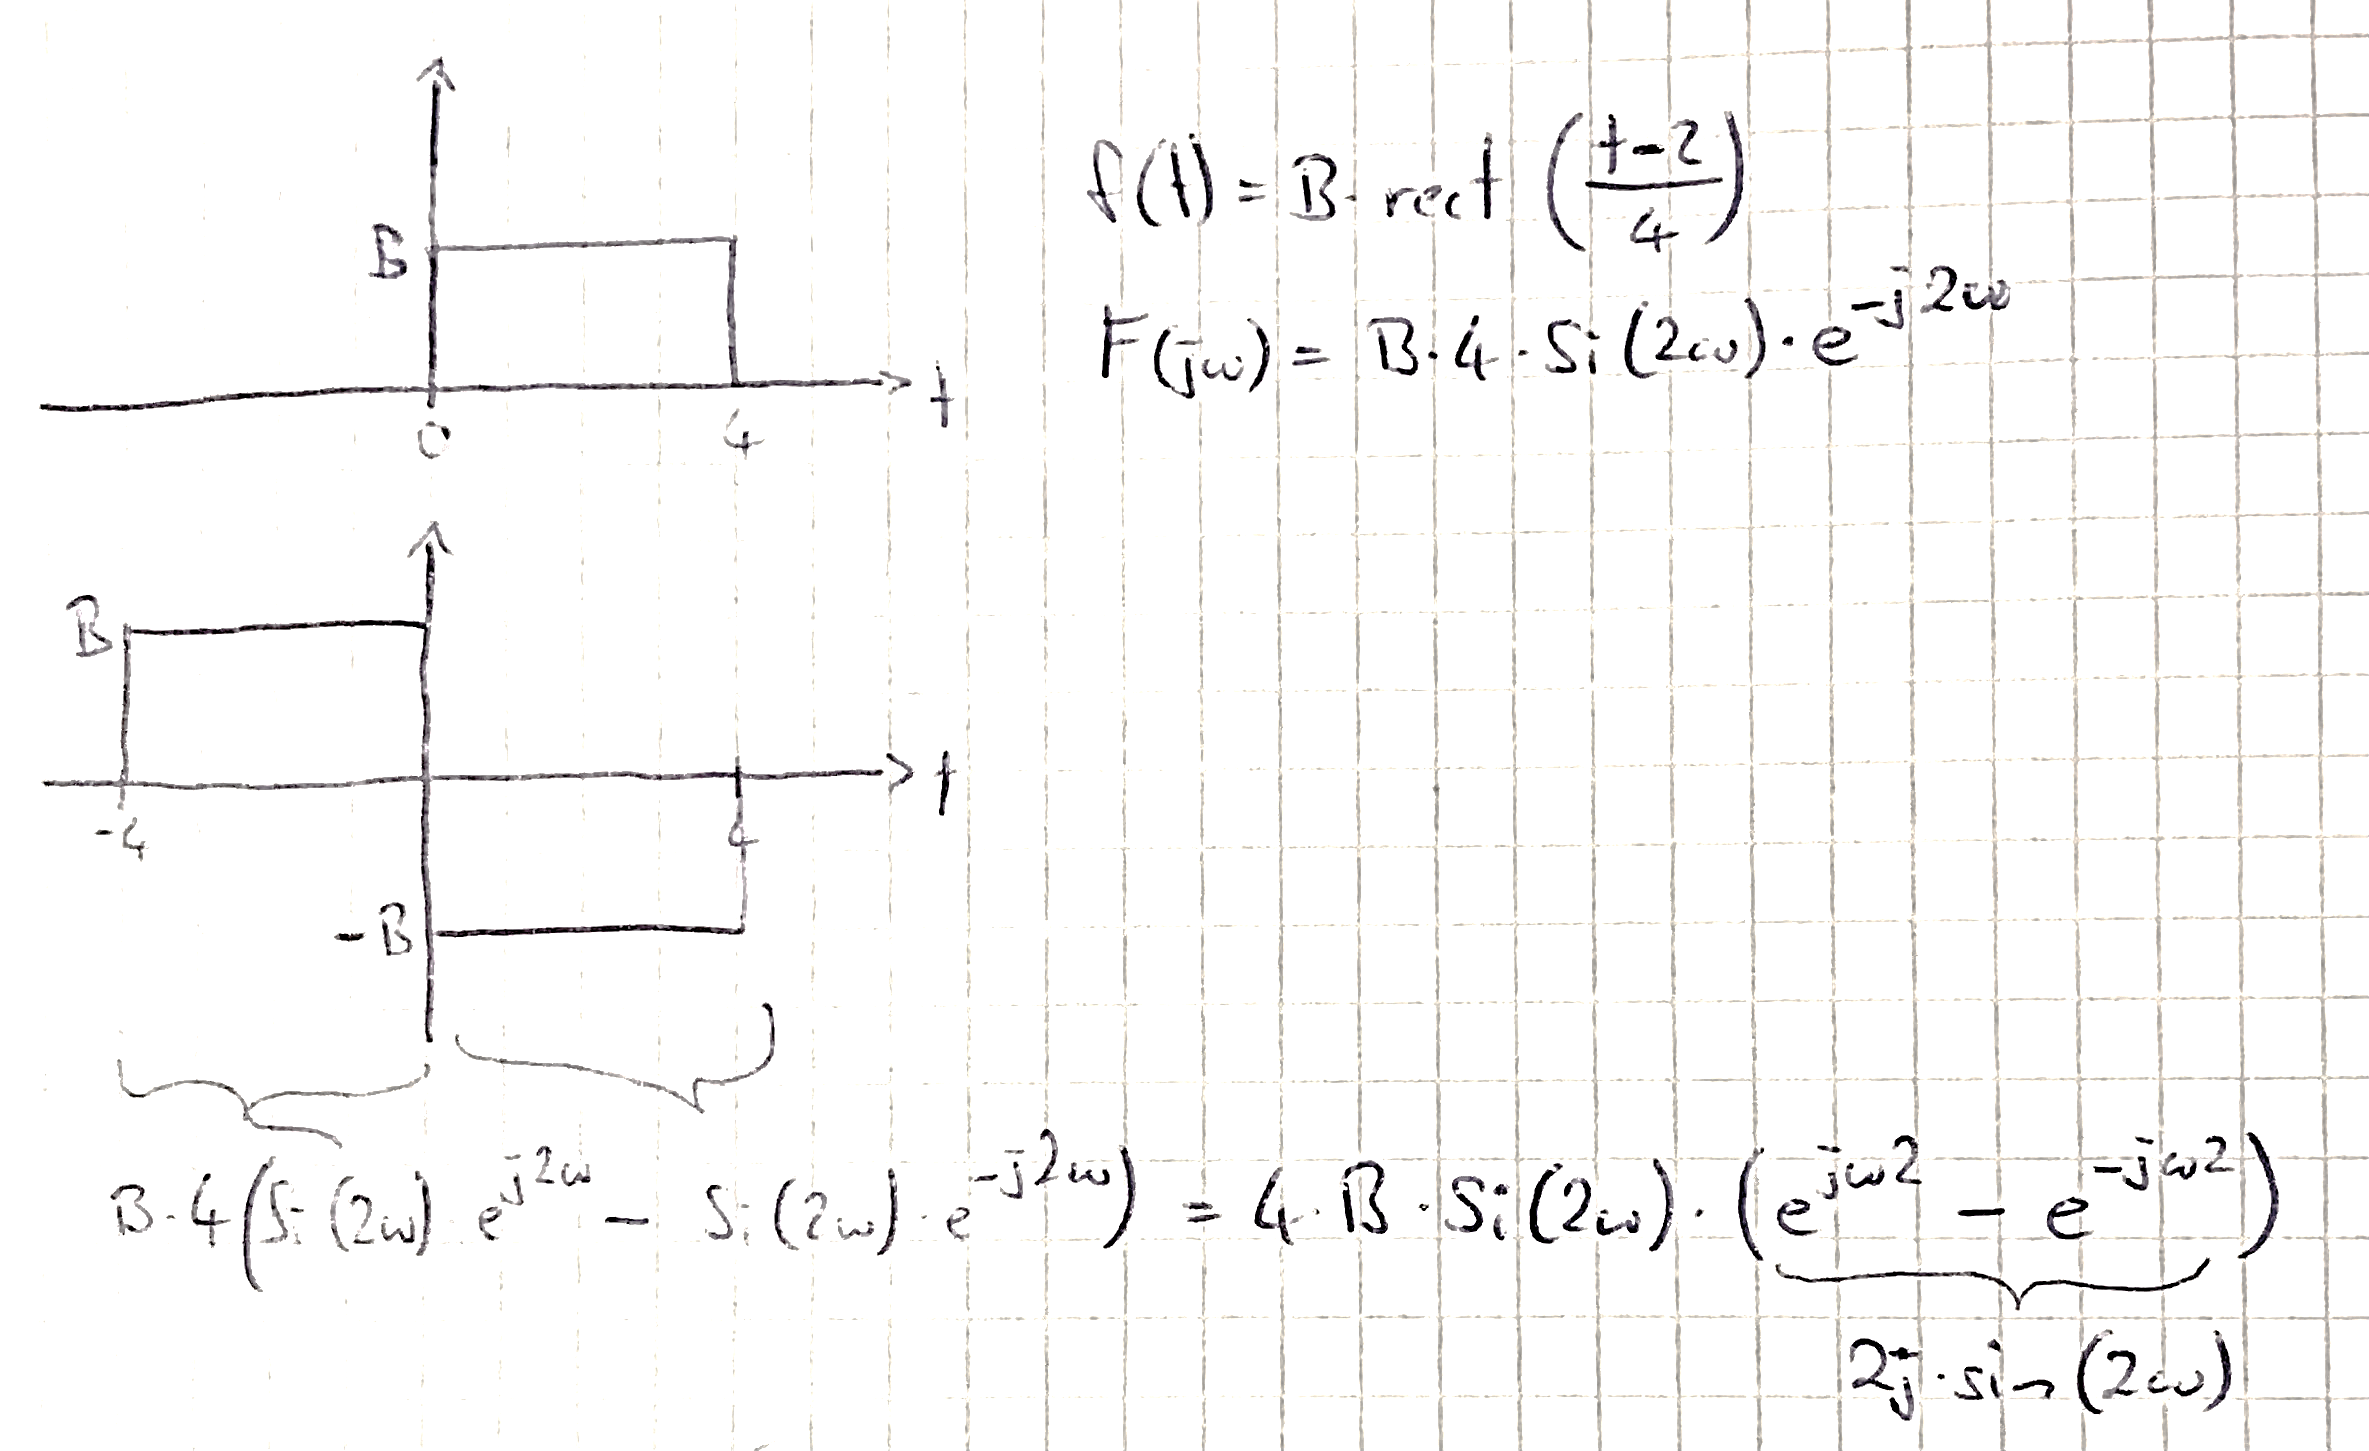 B
0
4
t
f(t) = B · rect ((t-2)/4)
F(jω) = B·4·Si(2ω)·e^{-j2ω}
B
-4
4
t
-B
B·4(Si(2ω)·e^{j2ω} - Si(2ω)·e^{-j2ω}) = 4·B·Si(2ω)·(e^{jω2} - e^{-jω2})
2j·sin(2ω)